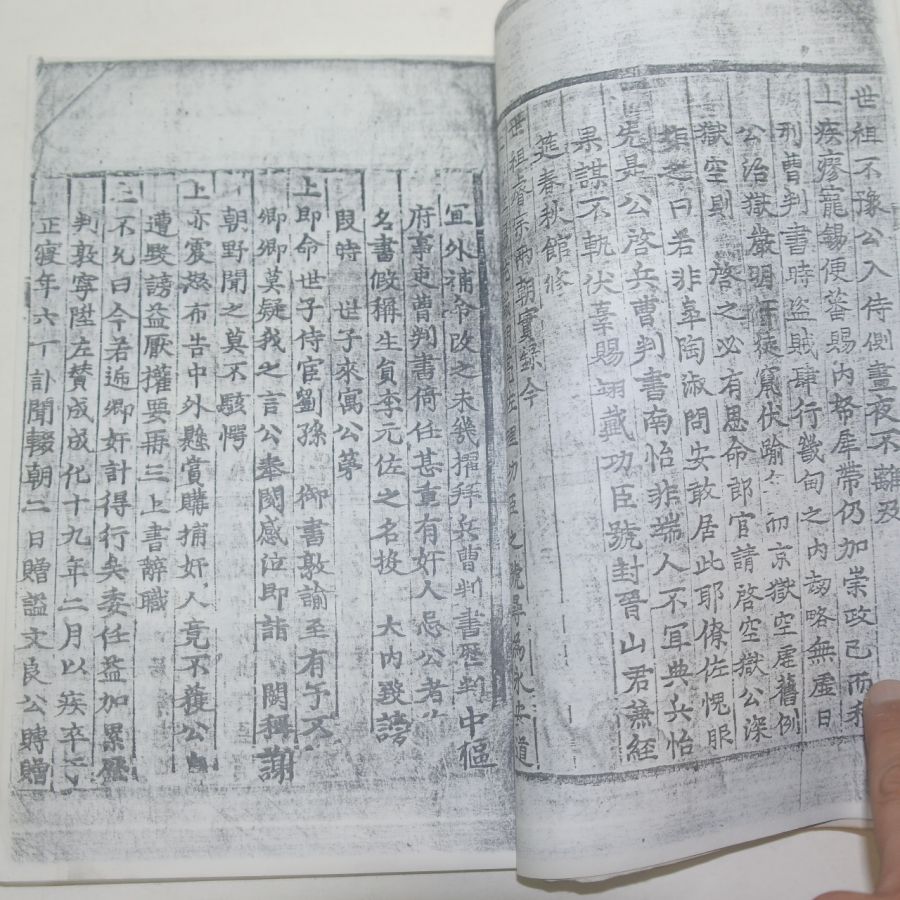 世祖不豫公入侍側晝夜不離及
上疾瘳寵錫便蕃賜內帑犀帶仍加崇政已而
刑曹判書時盜賊肆行畿甸之內刼略無虛日
公治獄嚴明奸猾竄伏踰 而京獄空虛舊例
獄空則 啓之必有恩命郎官請啓空獄公深
指之曰若非皐陶淑問安敢居此耶僚佐愧服
先是公啓兵曹判書南怡非端人不宜典兵怡
果謀不軌伏辜賜翊戴功臣號封晉山君兼經
筵春秋館修
世祖睿宗兩朝實錄今
功臣之號尋爲永安道
宜外補令改之未幾擢拜兵曹判書歷判中樞
府事吏曹判書倚任甚重有奸人忌公者
名書假稱生負李元佐之名投 大內致謗
毁時 世子來寓公第
上即命世子侍宦劉孫 御書敦諭至有予不
卿卿莫疑我之言公奉閱感泣即詣 闕稱謝
朝野聞之莫不駭愕
上亦震怒布告中外懸賞購捕奸人竟不獲公
遭毁謗益厭權要再三上書辭職
上不允曰今若遞卿奸計得行矣委任益加累歷
判敦寧陞左贊成成化十九年二月以疾卒于
正寢年六十訃聞輟朝二日贈謚文良公賻贈